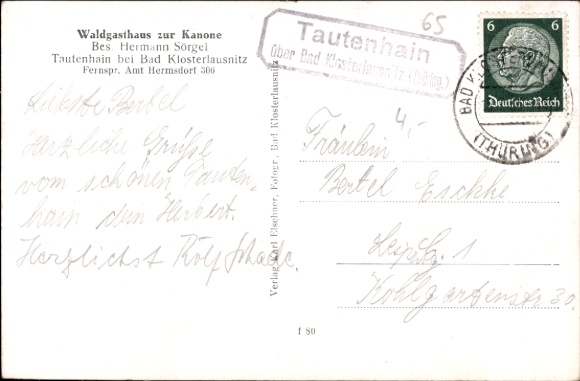 Waldgasthaus zur Kanone
Bes Hermann Sörgel
Tautenhain bei Bad Klosterlausnitz
Fernspr. Amt Hermsdorf 306
Liebste Bertel
Herzliche Grüße
vom schönen Tauten-
hain dein Herbert.
Herzlichst Rolf
Verlag Karl Elschner, Fotogr., Bad Klosterlausnitz
f 80
65
Tautenhain
über Bad Klosterlausnitz (Thüring.)
6 6
Deutsches Reich
BAD
(THÜRING)
4,-
Fräulein
Bertel
Leipzig 1
Kohlgartenstr 30.